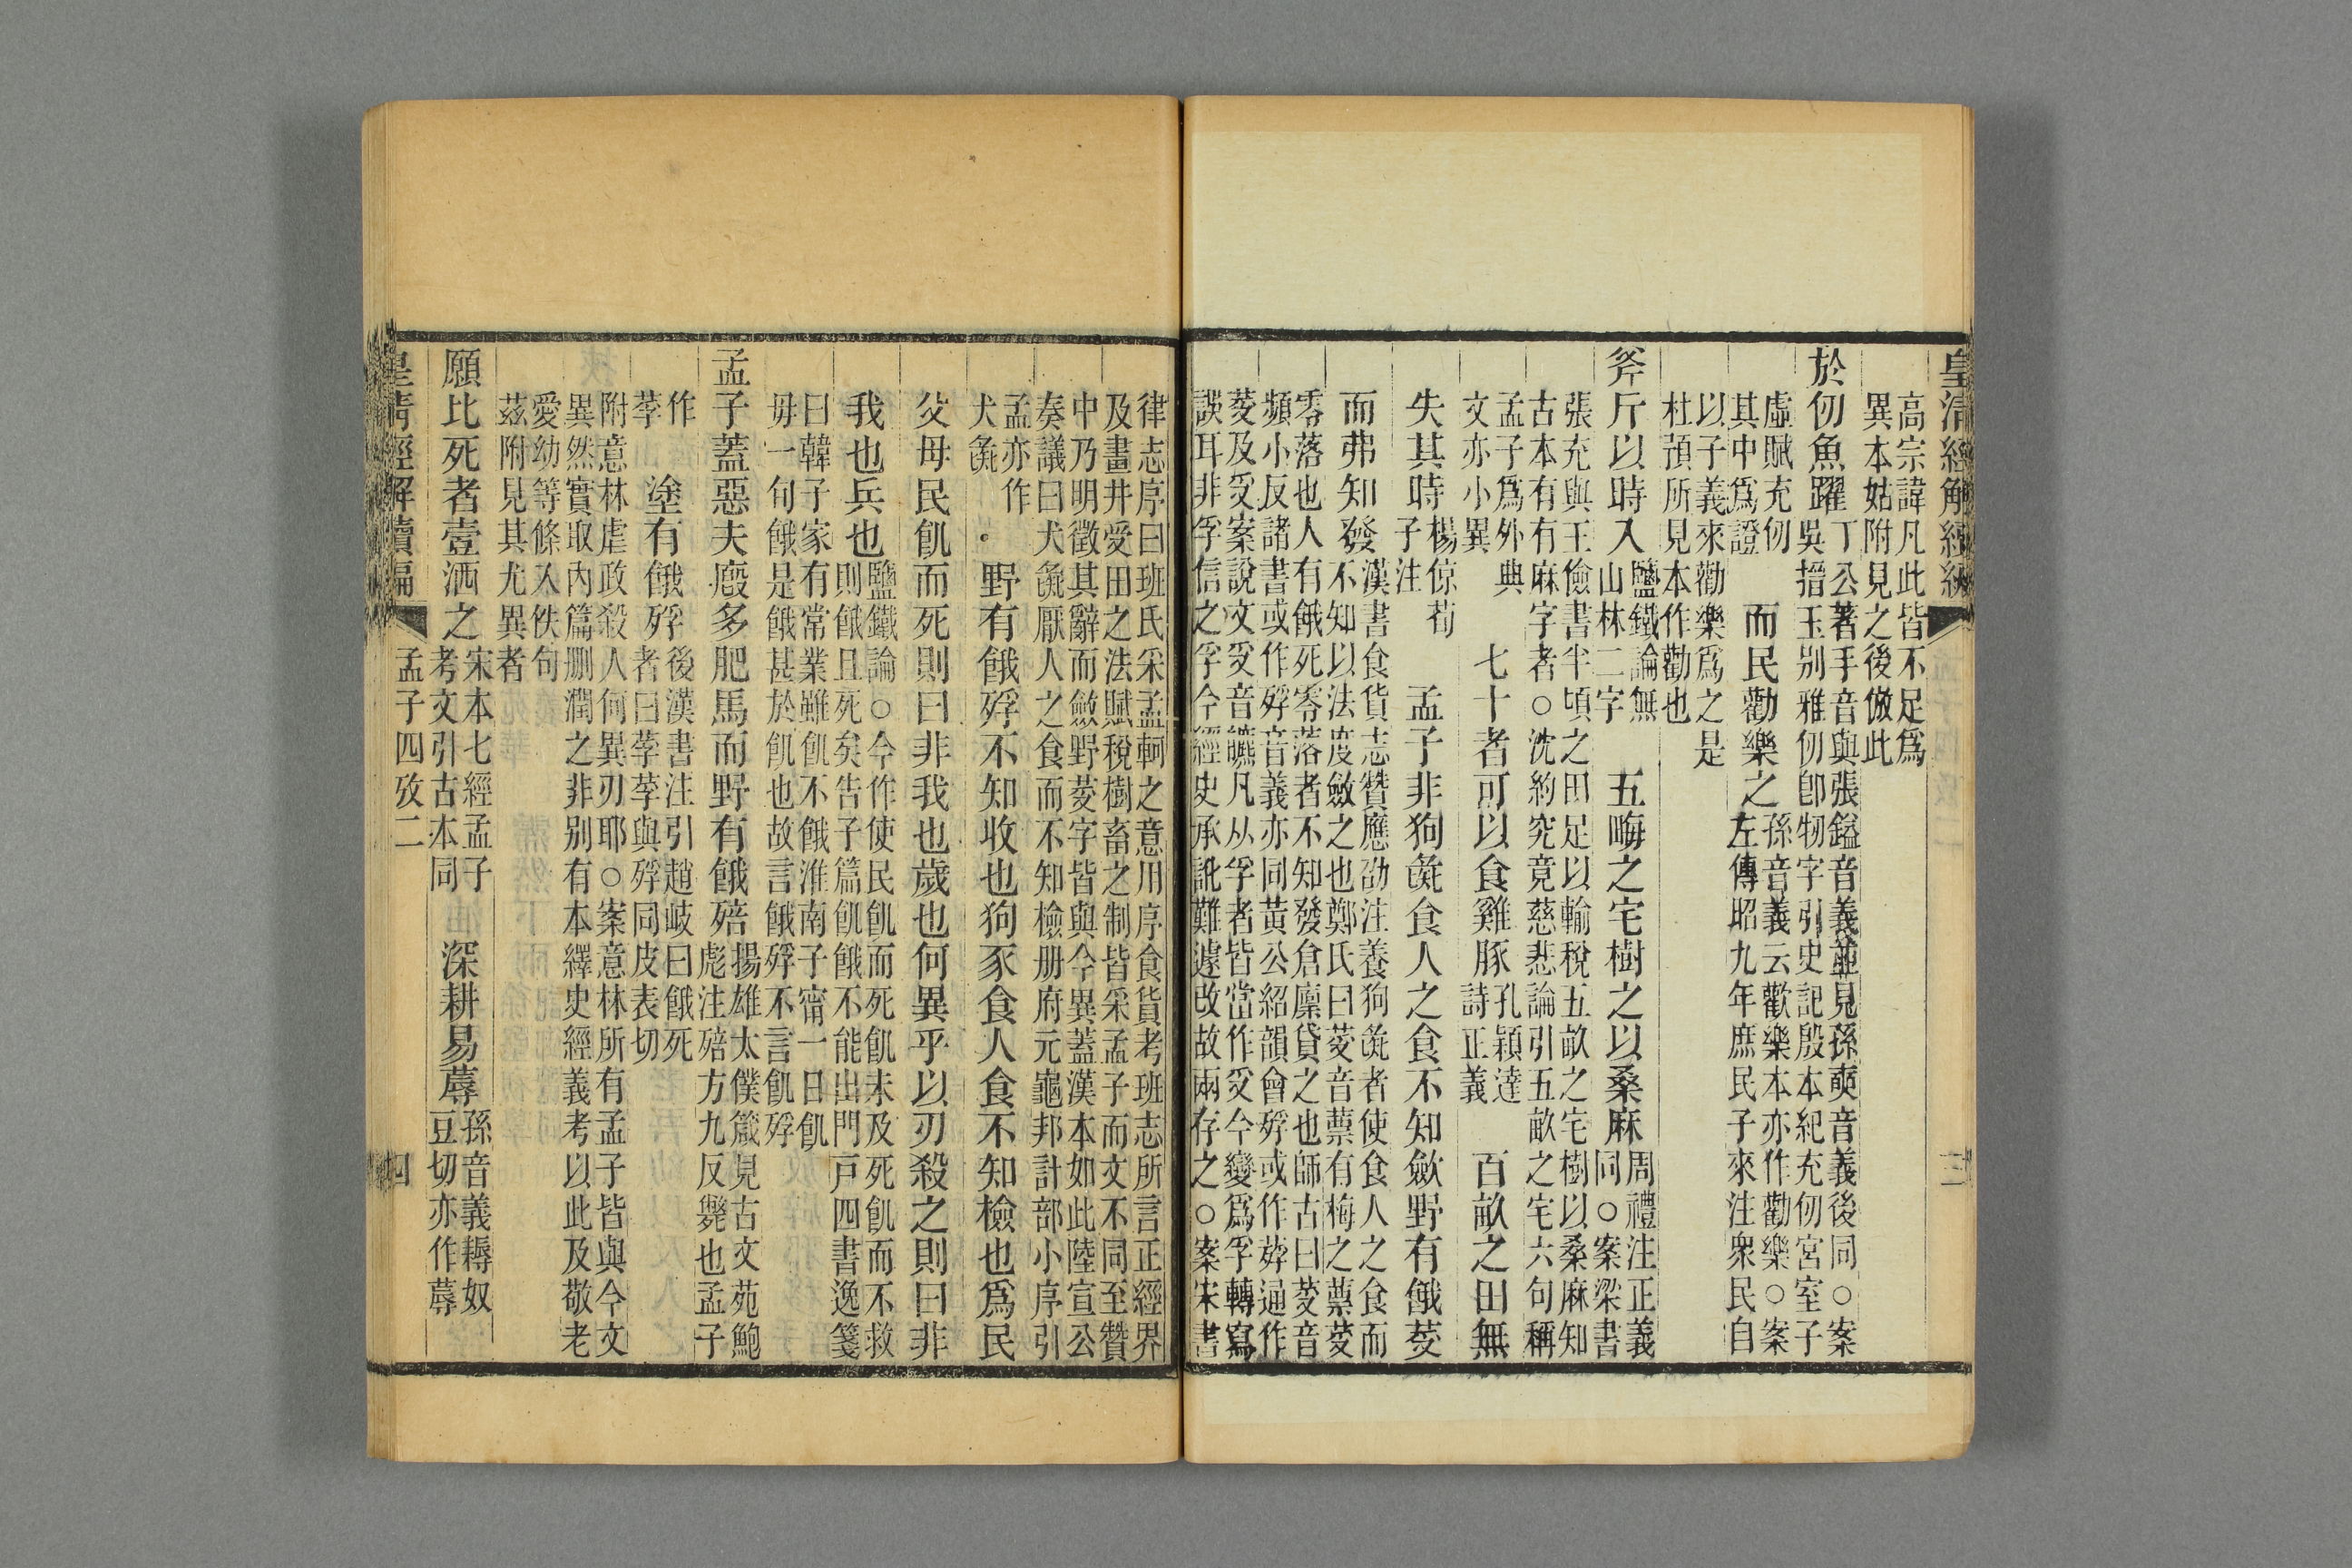 皇清經解續編 三
高宗諱凡此皆不足爲
異本姑附見之後倣此
於仞魚躍
丁公著手音與張鎰音義並見孫奭音義後同○案
吳搢玉別雅仞卽牣字引史記殷本紀充仞宮室子
虛賦充仞
其中爲證
而民勸樂之
孫音義云歡樂本亦作勸樂○案
左傳昭九年庶民子來注衆民自
以子義來勸樂爲之是
杜預所見本作勸也
斧斤以時入
鹽鐵論無
山林二字
五畮之宅樹之以桑麻
周禮注正義
同○案梁書
張充與王儉書半頃之田足以輸稅五畝之宅樹以桑麻知
古本有有麻字者○沈約究竟慈悲論引五畝之宅六句稱
孟子爲外典
文亦小異
七十者可以食雞豚
孔穎達
詩正義
百畝之田無
失其時
楊倞荀
子注
孟子非狗彘食人之食不知斂野有餓䒺
而弗知發
漢書食貨志贊應劭注養狗彘者使食人之食而
不知以法度斂之也鄭氏曰䒺音蔈有梅之蔈䒺
零落也人有餓死零落者不知發倉廩貸之也師古曰䒺音
頻小反諸書或作殍音義亦同黃公紹韻會殍或作荸通作
䒺及𠬪案說文𠬪音𤓽凡从孚者皆當作𠬪今變爲孚轉寫
誤耳非孚信之孚今經史承訛難遽改故兩存之○案宋書
律志序曰班氏采孟軻之意用序食貨考班志所言正經界
及畫井受田之法賦稅樹畜之制皆采孟子而文不同至贊
中乃明徵其辭而斂野䒺字皆與今異蓋漢本如此陸宣公
奏議曰犬彘厭人之食而不知檢册府元龜邦計部小序引
孟亦作
犬彘
野有餓殍不知收也狗豕食人食不知檢也爲民
父母民飢而死則曰非我也歲也何異乎以刃殺之則曰非
我也兵也
鹽鐵論○今作使民飢而死飢未及死飢而不救
則餓且死矣告子篇飢餓不能出門戶四書逸箋
曰韓子家有常業雖飢不餓淮南子甯一日飢
毋一旬餓是餓甚於飢也故言餓殍不言飢殍
孟子蓋惡夫廄多肥馬而野有餓殕
揚雄太僕箴見古文苑鮑
彪注殕方九反斃也孟子
作
莩
塗有餓殍
後漢書注引趙岐曰餓死
者曰莩莩與殍同皮表切
附意林虐政殺人何異刃耶○案意林所有孟子皆與今文
異然實取內篇刪潤之非別有本繹史經義考以此及敬老
愛幼等條入佚句
茲附見其尤異者
願比死者壹洒之
宋本七經孟子
考文引古本同
深耕易蓐
孫音義耨奴
豆切亦作蓐
皇清經解續編 孟子四攷二 四